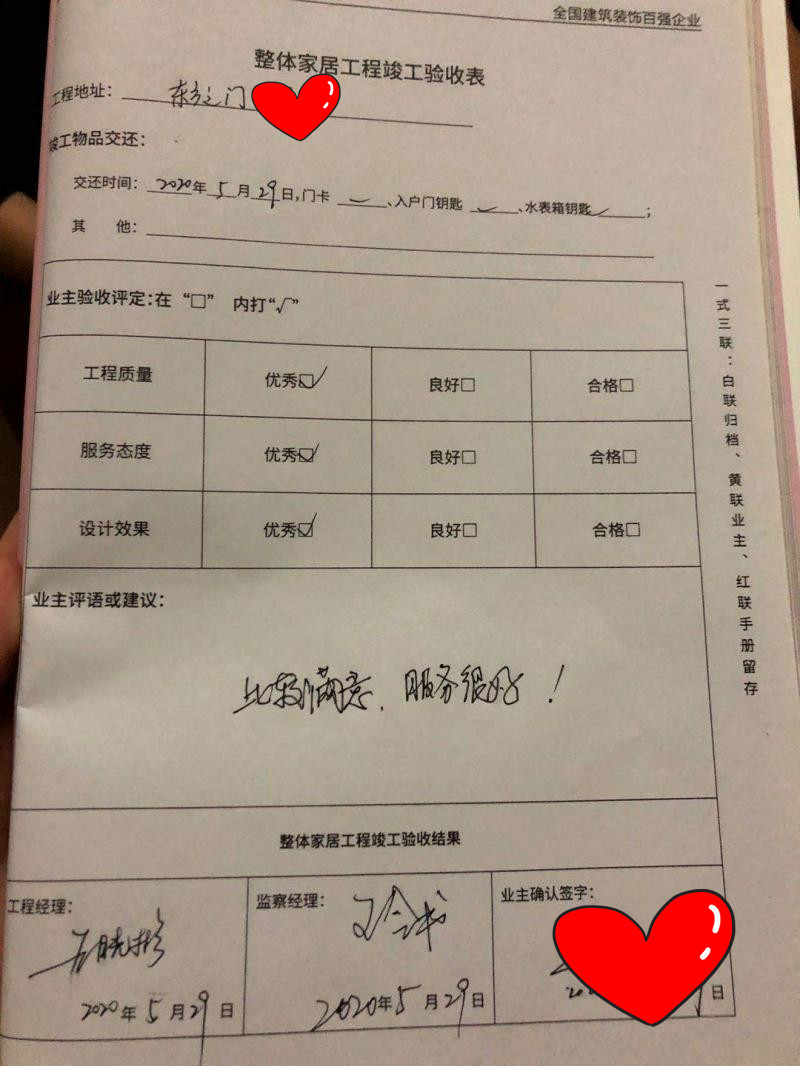 全国建筑装饰百强企业
整体家居工程竣工验收表
工程地址：东方之门
竣工物品交还：
交还时间：2020年5月29日，门卡✓、入户门钥匙✓、水表箱钥匙✓；
其 他：
业主验收评定：在“□”内打“√”
工程质量 优秀☑ 良好□ 合格□
服务态度 优秀☑ 良好□ 合格□
设计效果 优秀☑ 良好□ 合格□
业主评语或建议：
比较满意，服务很好！
整体家居工程竣工验收结果
工程经理： 监察经理： 业主确认签字：
2020年5月29日 2020年5月29日 日
一式三联：白联归档、黄联业主、红联手册留存